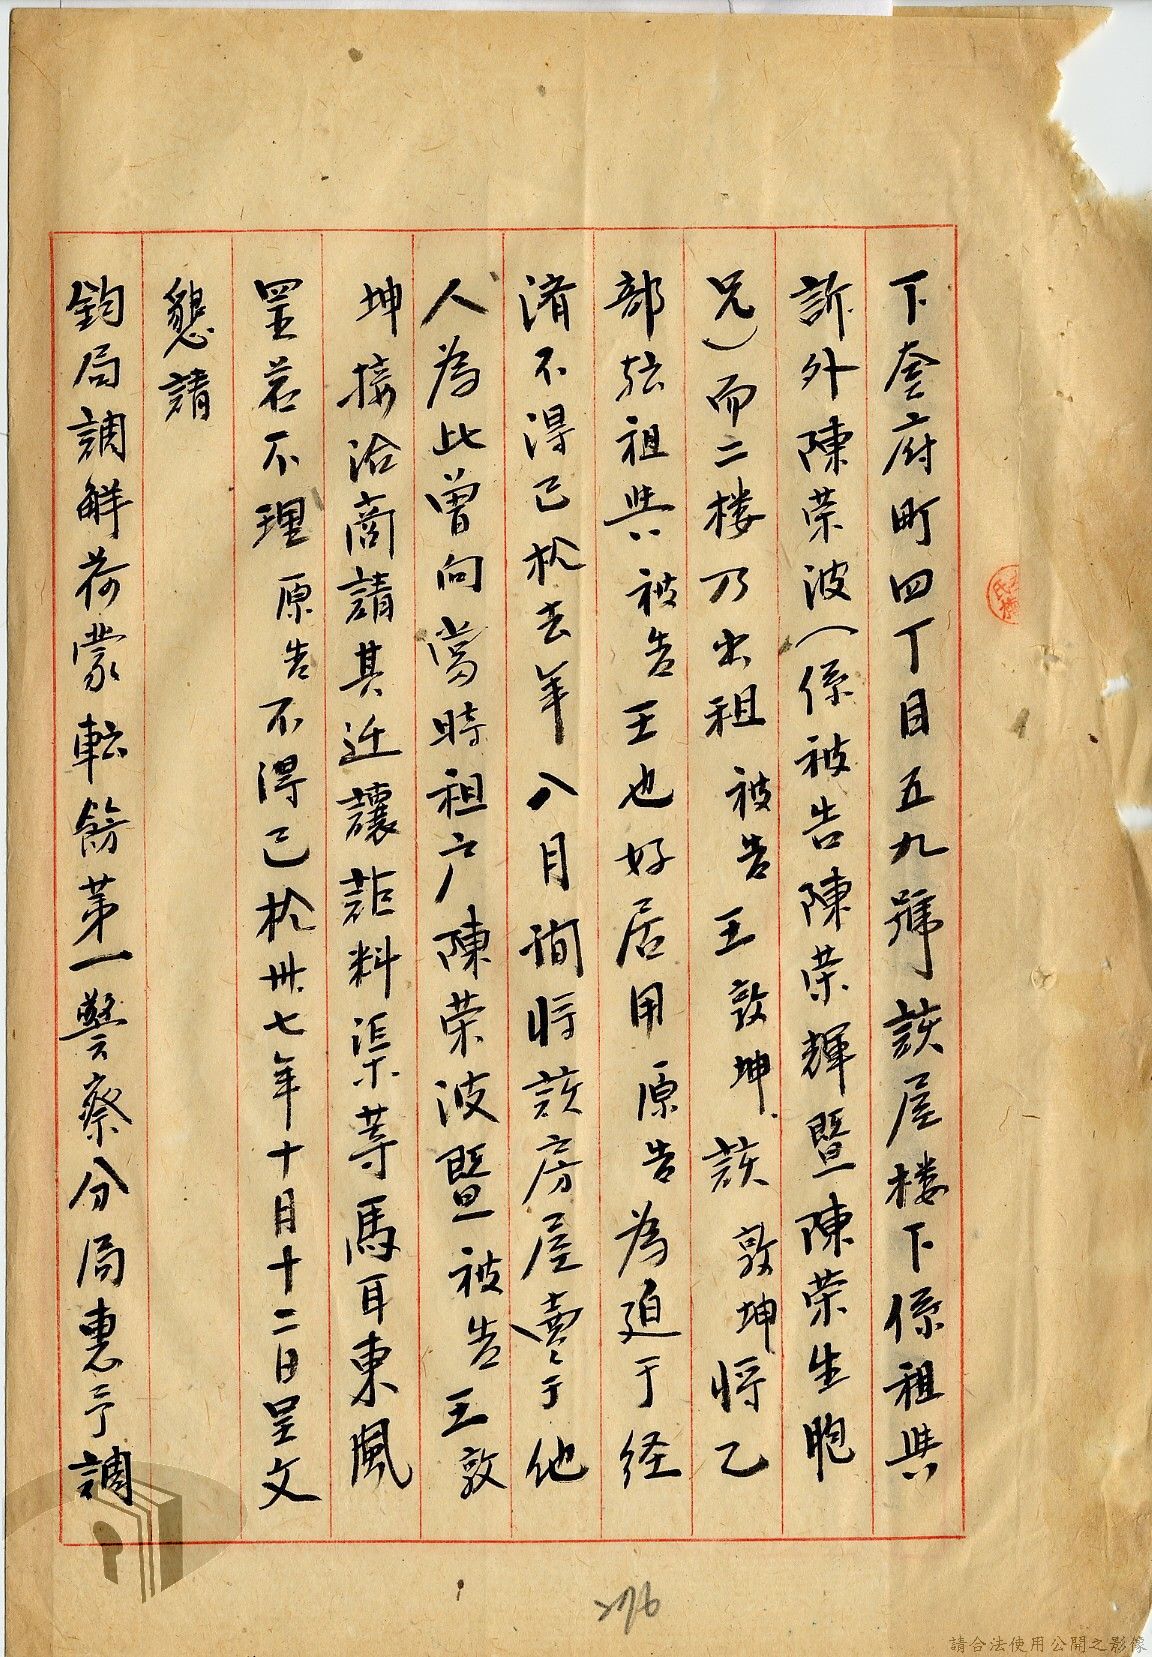 下奎府町四丁目五九號該屋楼下係租與
訴外陳荣波(係被告陳荣輝暨陳荣生胞
兄)而二楼乃出租被告王敦坤該敦坤将乙
部転租與被告王也好居用原告為迫于经
済不得已於去年八月間将該房屋賣于他
人為此曾向當時租户陳荣波暨被告王敦
坤接洽商請其迁讓詎料渠等馬耳東風
置若不理原告不得已於卅七年十月十二日呈文
懇請
鈞局調解荷蒙転飭第一警察分局惠予調
276
請合法使用公開之影像